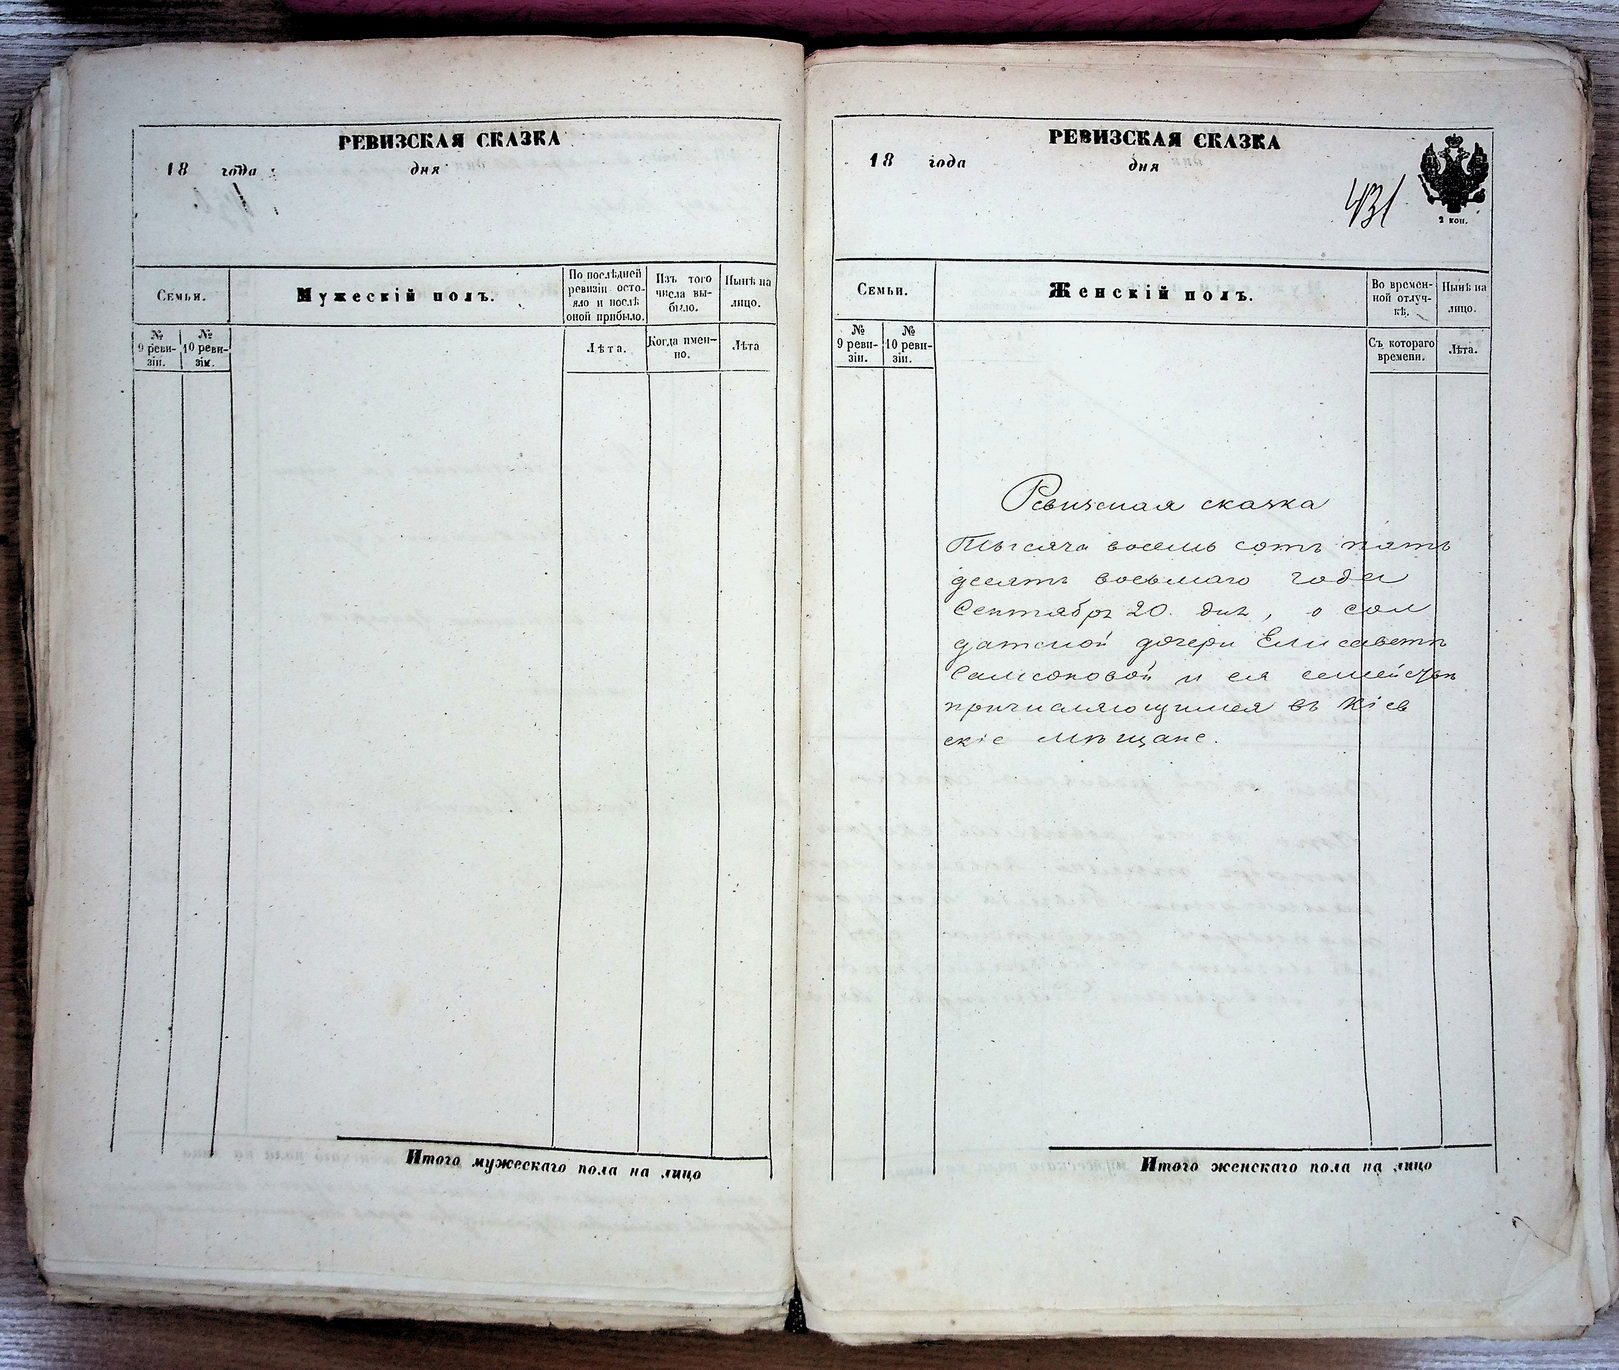 РЕВИЗСКАЯ СКАЗКА
18 года дня
Семьи.
Мужескій полъ.
По послѣдней ревизіи состояло и послѣ оной прибыло.
Изъ того числа выбыло.
Нынѣ на лицо.
№ 9 ревизіи.
№ 10 ревизіи.
Лѣта.
Когда именно.
Лѣта
Итого мужескаго пола на лицо
РЕВИЗСКАЯ СКАЗКА
18 года дня
431
2 коп.
Семьи.
Женскій полъ.
Во временной отлучкѣ.
Нынѣ на лицо.
№ 9 ревизіи.
№ 10 ревизіи.
Съ котораго времени.
Лѣта.
Ревизская сказка
Тысяча восемь сотъ пять
десятъ восьмаго года
Сентября 20 дня, о сол
датской дочери Елисаветѣ
Самсоновой и ея семействѣ
причисляющимся въ Кіев
скіе мѣщане.
Итого женскаго пола на лицо